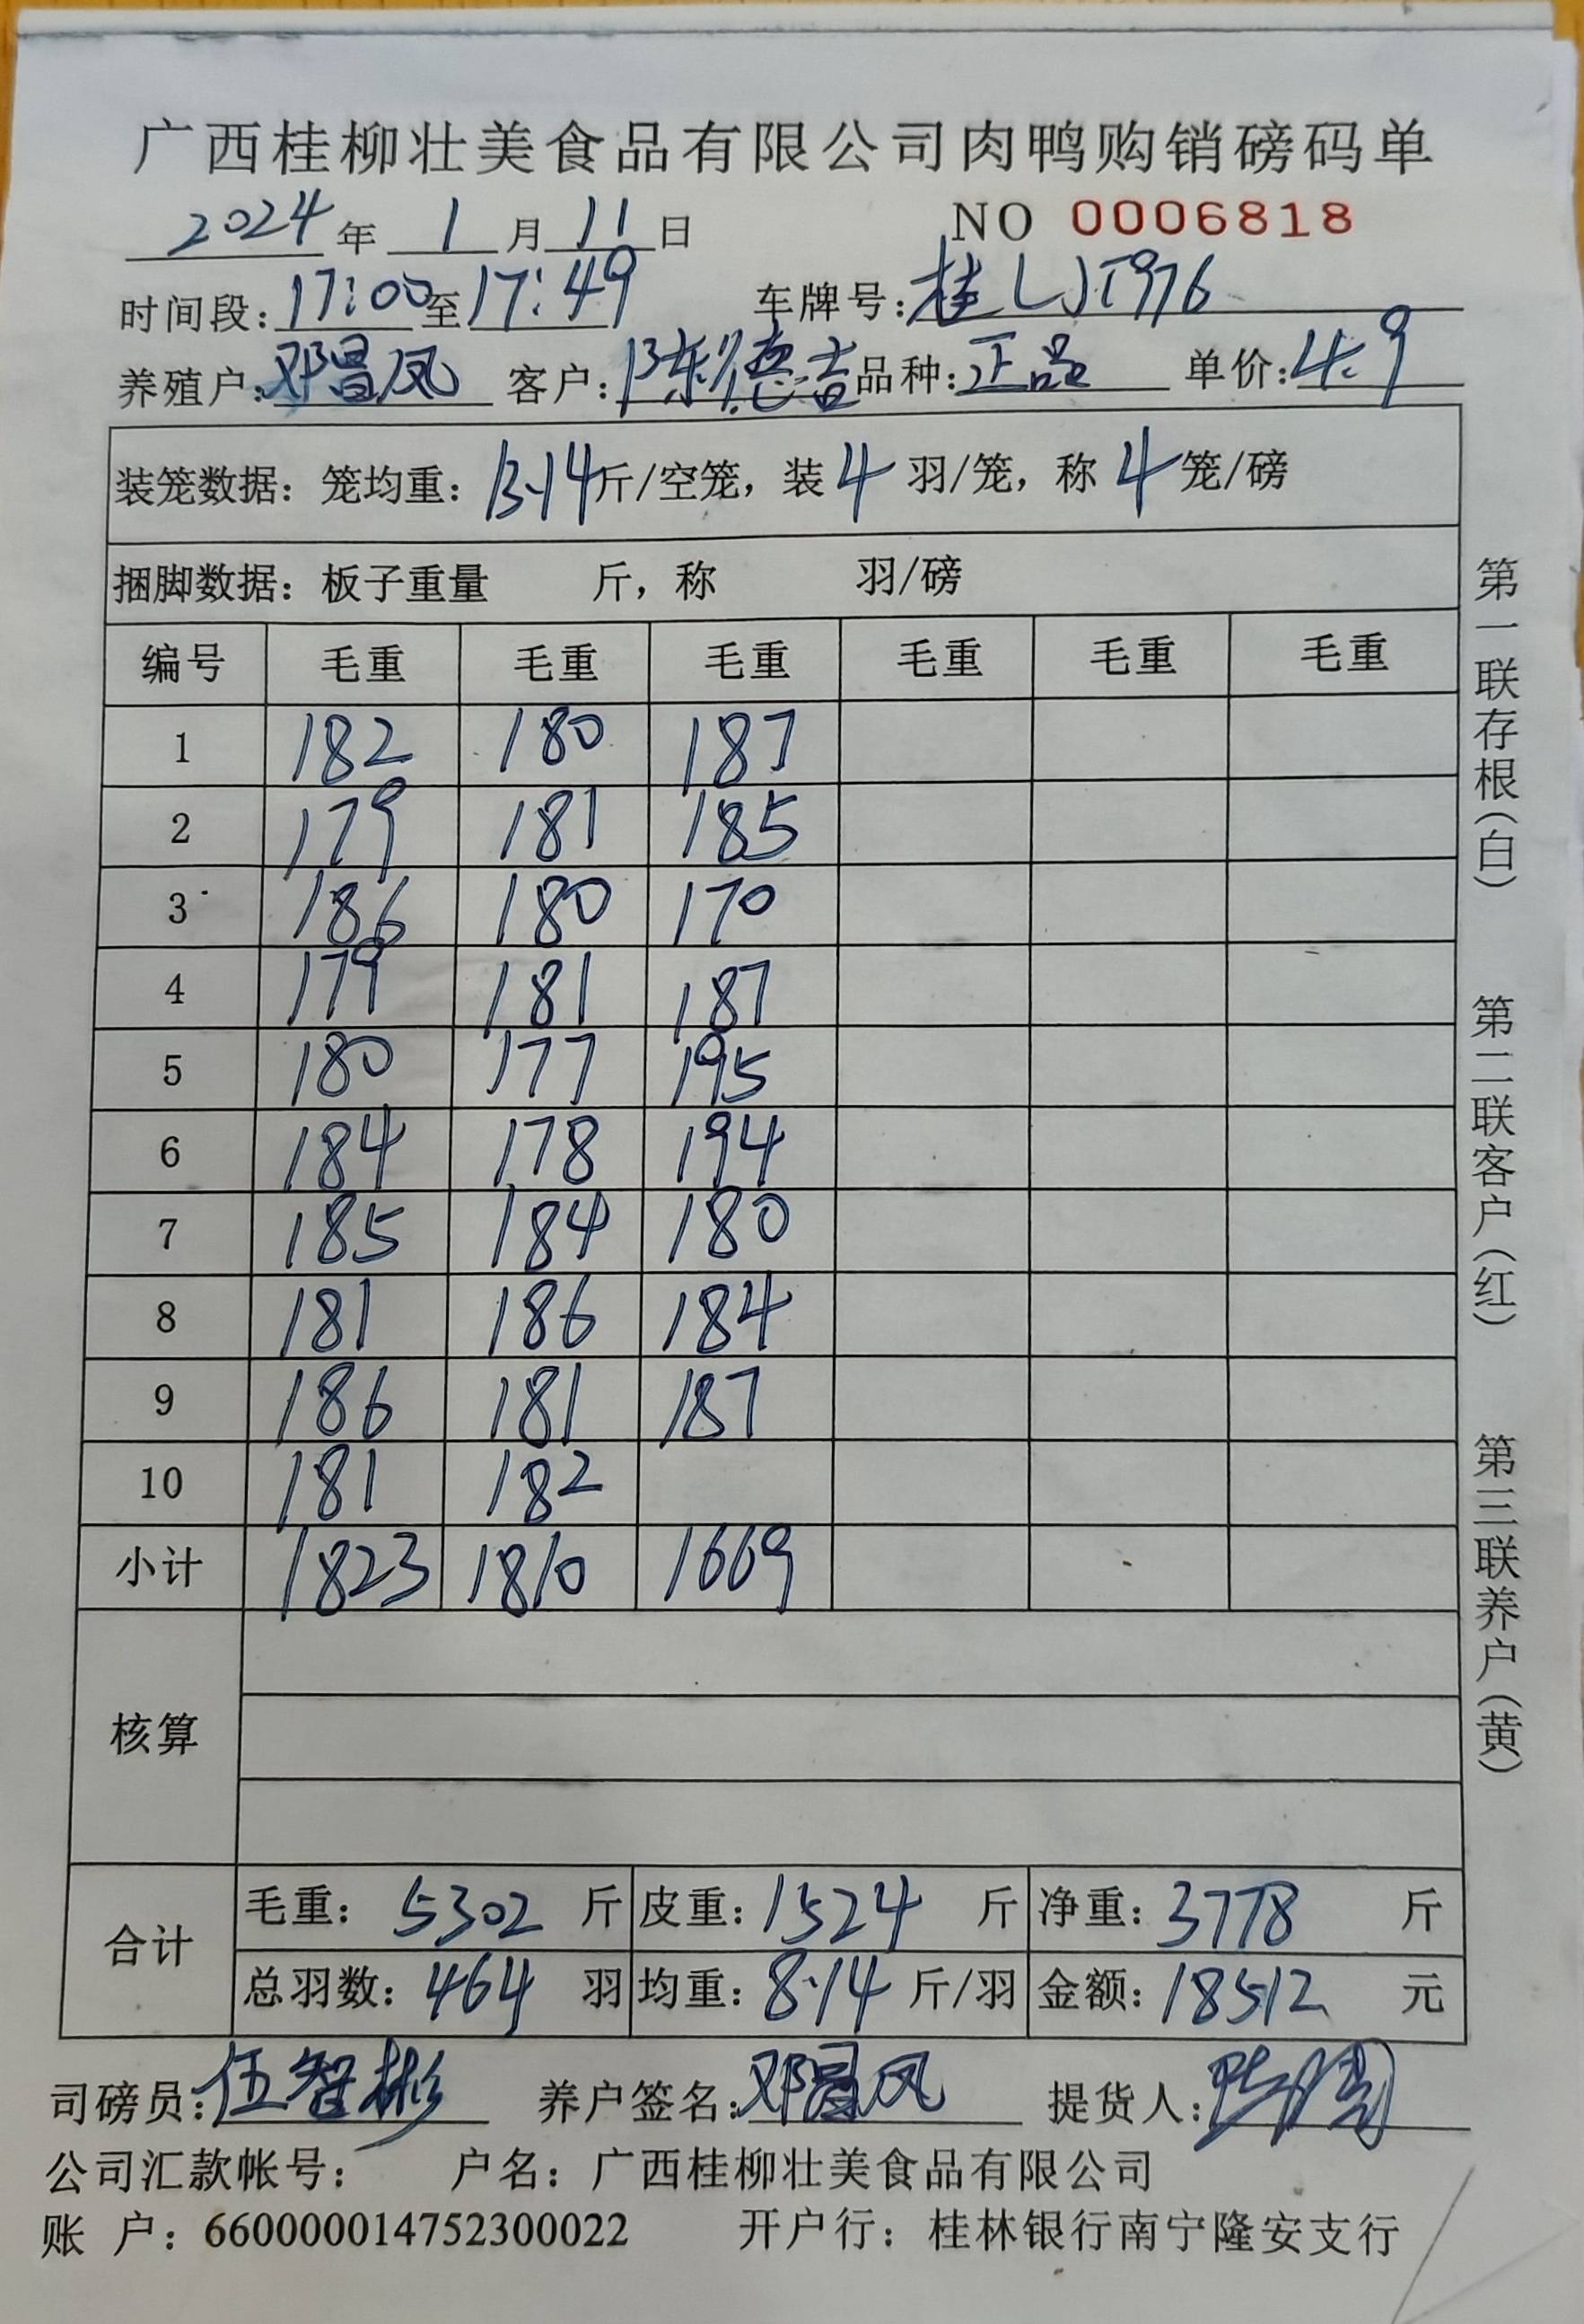 广西桂柳壮美食品有限公司肉鸭购销磅码单
2024年 1月11日 NO 0006818
时间段：17:00至17:49 车牌号：桂LJT976
养殖户：邓昌凤 客户：陈德吉 品种：正品 单价：4.9
装笼数据：笼均重：13.14斤/空笼，装4羽/笼，称4笼/磅
捆脚数据：板子重量 斤，称 羽/磅
编号 毛重 毛重 毛重 毛重 毛重 毛重
1 182 180 187
2 179 181 185
3 186 180 170
4 179 181 187
5 180 177 195
6 184 178 194
7 185 184 180
8 181 186 184
9 186 181 187
10 181 182
小计 1823 1810 1669
核算
合计 毛重：5302斤 皮重：1524斤 净重：3778斤
总羽数：464羽 均重：8.14斤/羽 金额：18512元
司磅员：伍智彬 养户签名：邓昌凤 提货人：
公司汇款帐号： 户名：广西桂柳壮美食品有限公司
账 户：660000014752300022 开户行：桂林银行南宁隆安支行
第一联存根（白） 第二联客户（红） 第三联养户（黄）